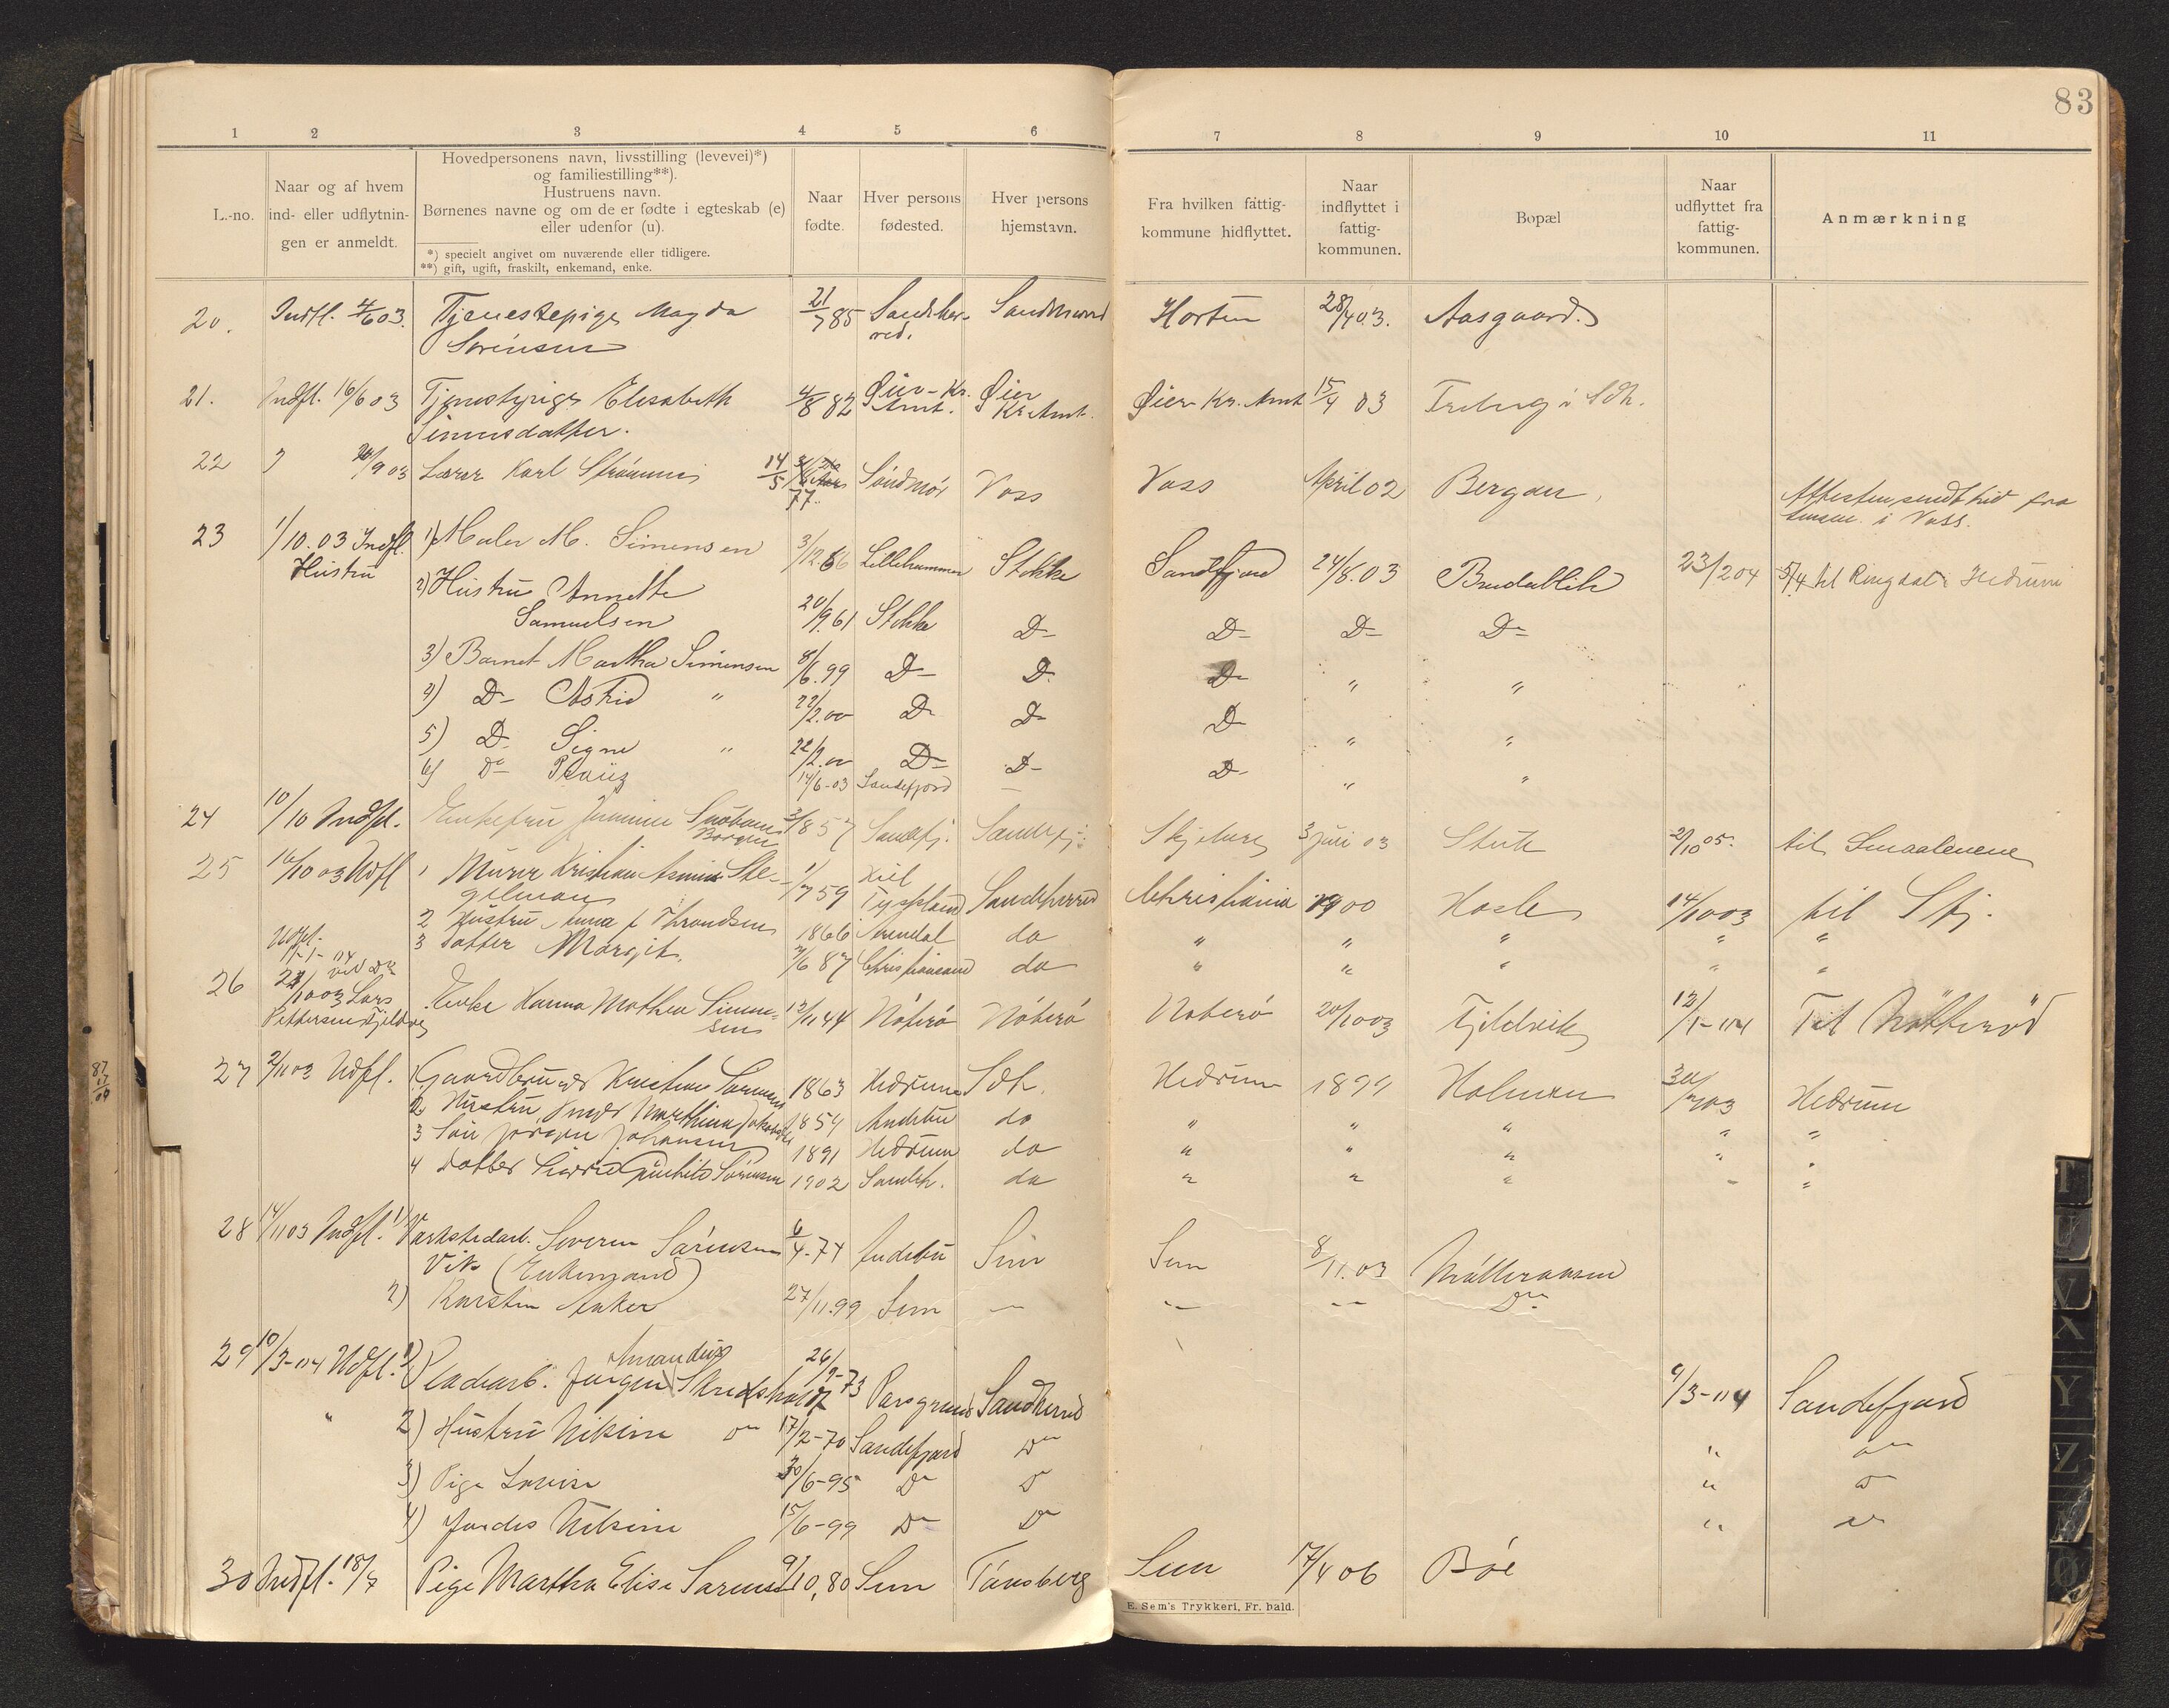 83
1 2 3 4 5 6 7 8 9 10 11
L.-no.
Naar og af hvem
ind- eller udflytnin-
gen er anmeldt.
Hovedpersonens navn, livsstilling (levevei)*)
og familiestilling**).
Hustruens navn.
Børnenes navne og om de er fødte i egteskab (e)
eller udenfor (u).
*) specielt angivet om nuværende eller tidligere.
**) gift, ugift, fraskilt, enkemand, enke.
Naar
fødte.
Hver persons
fødested.
Hver persons
hjemstavn.
Fra hvilken fattig-
kommune hidflyttet.
Naar
indflyttet i
fattig-
kommunen.
Bopæl
Naar
udflyttet fra
fattig-
kommunen.
Anmærkning
20. Indfl. 4/6 03. Tjenestepige Magda 21/7 85 Sandeher- Sandeherred Horten 28/4 03. Aasgaard
Sørensen red.
21. Indfl. 16/6 03 Tjenestepige Elisabeth 4/8 82 Øier Kr. Øier Øier Kr. Amt 15/4 03 Freberg i Sdh.
Simensdatter. Amt. Kr. Amt.
22 20/9 03 Lærer Karl Strømme 14/5 77 Søndmør Voss Voss April 02 Bergan Attesten sendt hid fra
i Voss.
23 1/10.03 Indfl. 1) Maler M. Simensen 3/12 66 Lillehammer Stokke Sandefjord 24/8.03 Breidablik 23/2 04 5/4 til Ringdal i Hedrum
Hustru 2) Hustru Annette
Samuelsen 20/9.61 Stokke D- D- D- D-
3) Barnet Martha Simensen 8/6.99 D- D. D- " "
4) D- Astrid " 22/2.00 D- D- D- " "
5) D- Signe " 22/2.00 D- D- D- " "
6) D- 14/6-03 Sandefjord
24 10/10 Indfl. Enkefru 3/8 57 Sandefj. Sandefj. Skjeberg 3 juni 03 Stub 2/10 05. til Smaalenene
25 16/10 03 Udfl 1 Murer Kristian Ste- 1/7 59 Kiel Sandeherred Christiania 1900 Hasle 14/10 03 til Sfj.
gelman Tyskland
2 Hustru Anna f. Throndsen 1866 Arendal do " " " " "
3 Datter Margit. 3/6 87 Christiansand do " " " " "
Udfl.
26 21/10 03 Lars Enke Hanna Mathea Simen- 12/11 44 Nøterø Nøterø Nøterø 20/10 03 Fjeldvik 12/1-04 Til Nøtterød
Pettersen Fjeldvig sen
27 2/11 03 Udfl. 1 Gaardbruger Kristian Sørensen 1863 Hedrum Sdh. Hedrum 1899 Holmen 30/10 03 Hedrum
2 Hustru Inger Marthina Jakobsd. 1854 Andebu do " " " " "
3 Søn Jørgen Johansen 1891 Hedrum do " " " " "
4 Datter Sørensen 1902 Sandeh. do " " " " "
28 14/11 03 Indfl. 1) Værkstedarb. Severin Sørensen 6/4.74 Andebu Sem Sem 8/11.03 Møllerånsen
Vik (Enkemand)
2) Karsten Anker 27/11.99 Sem — — — Do
29 10/3-04 Udfl. 1) Pladsarb. Jørgen Amandus Skredsholt 26/9-73 Porsgrund Sandherred 9/3-04 Sandefjord
" 2) Hustru Nikine Do 17/2-70 Sandefjord Do " Do
3) Pige Lovise 30/6-95 Do D " D
4) Jordis Nikine 15/6-99 Do Do " Do
30 Indfl. 18/7 Pige Martha Elise Sørensen 9/10.80 Sem Tønsberg Sem 17/4 06 Bøe
E. Sem's Trykkeri, Fr. hald.
87
17
09
T
U
V
X
Y
Z
Æ
Ø